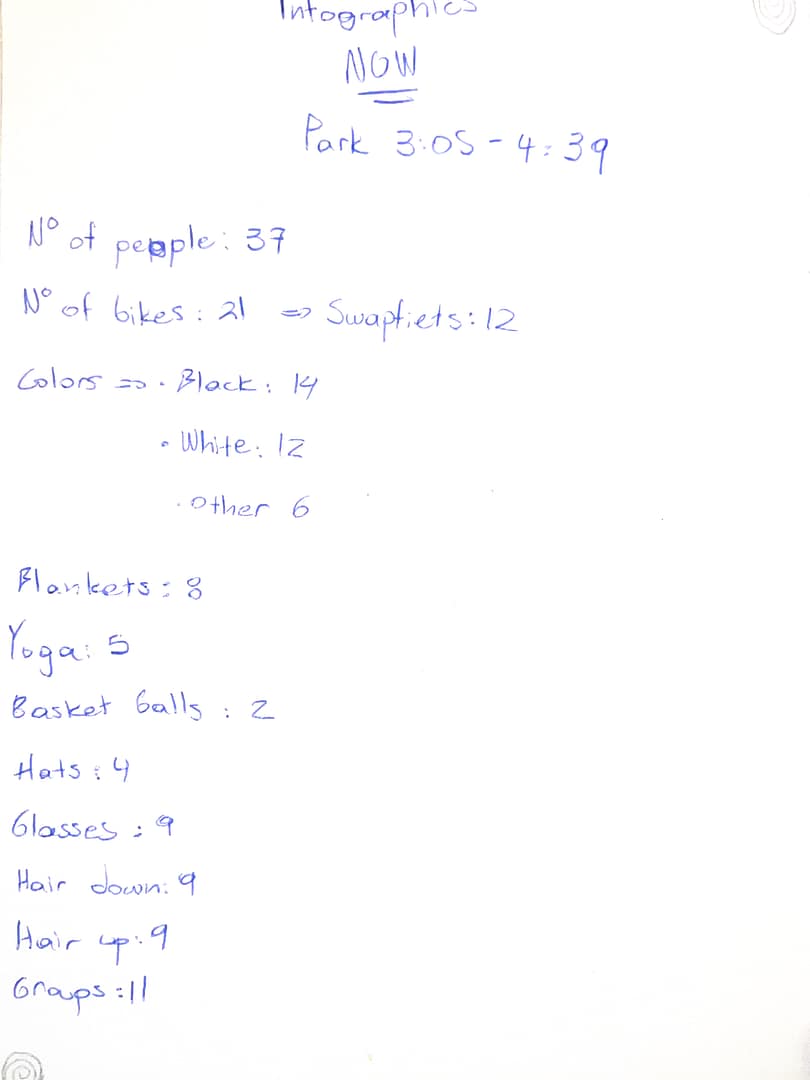 Infographics
NOW
Park 3:05 - 4:39
Nº of people: 37
Nº of bikes: 21 => Swapfiets: 12
Colors => • Black: 14
• White: 12
• Other 6
Blankets: 8
Yoga: 5
Basket balls: 2
Hats: 4
Glasses: 9
Hair down: 9
Hair up: 9
Groups: 11